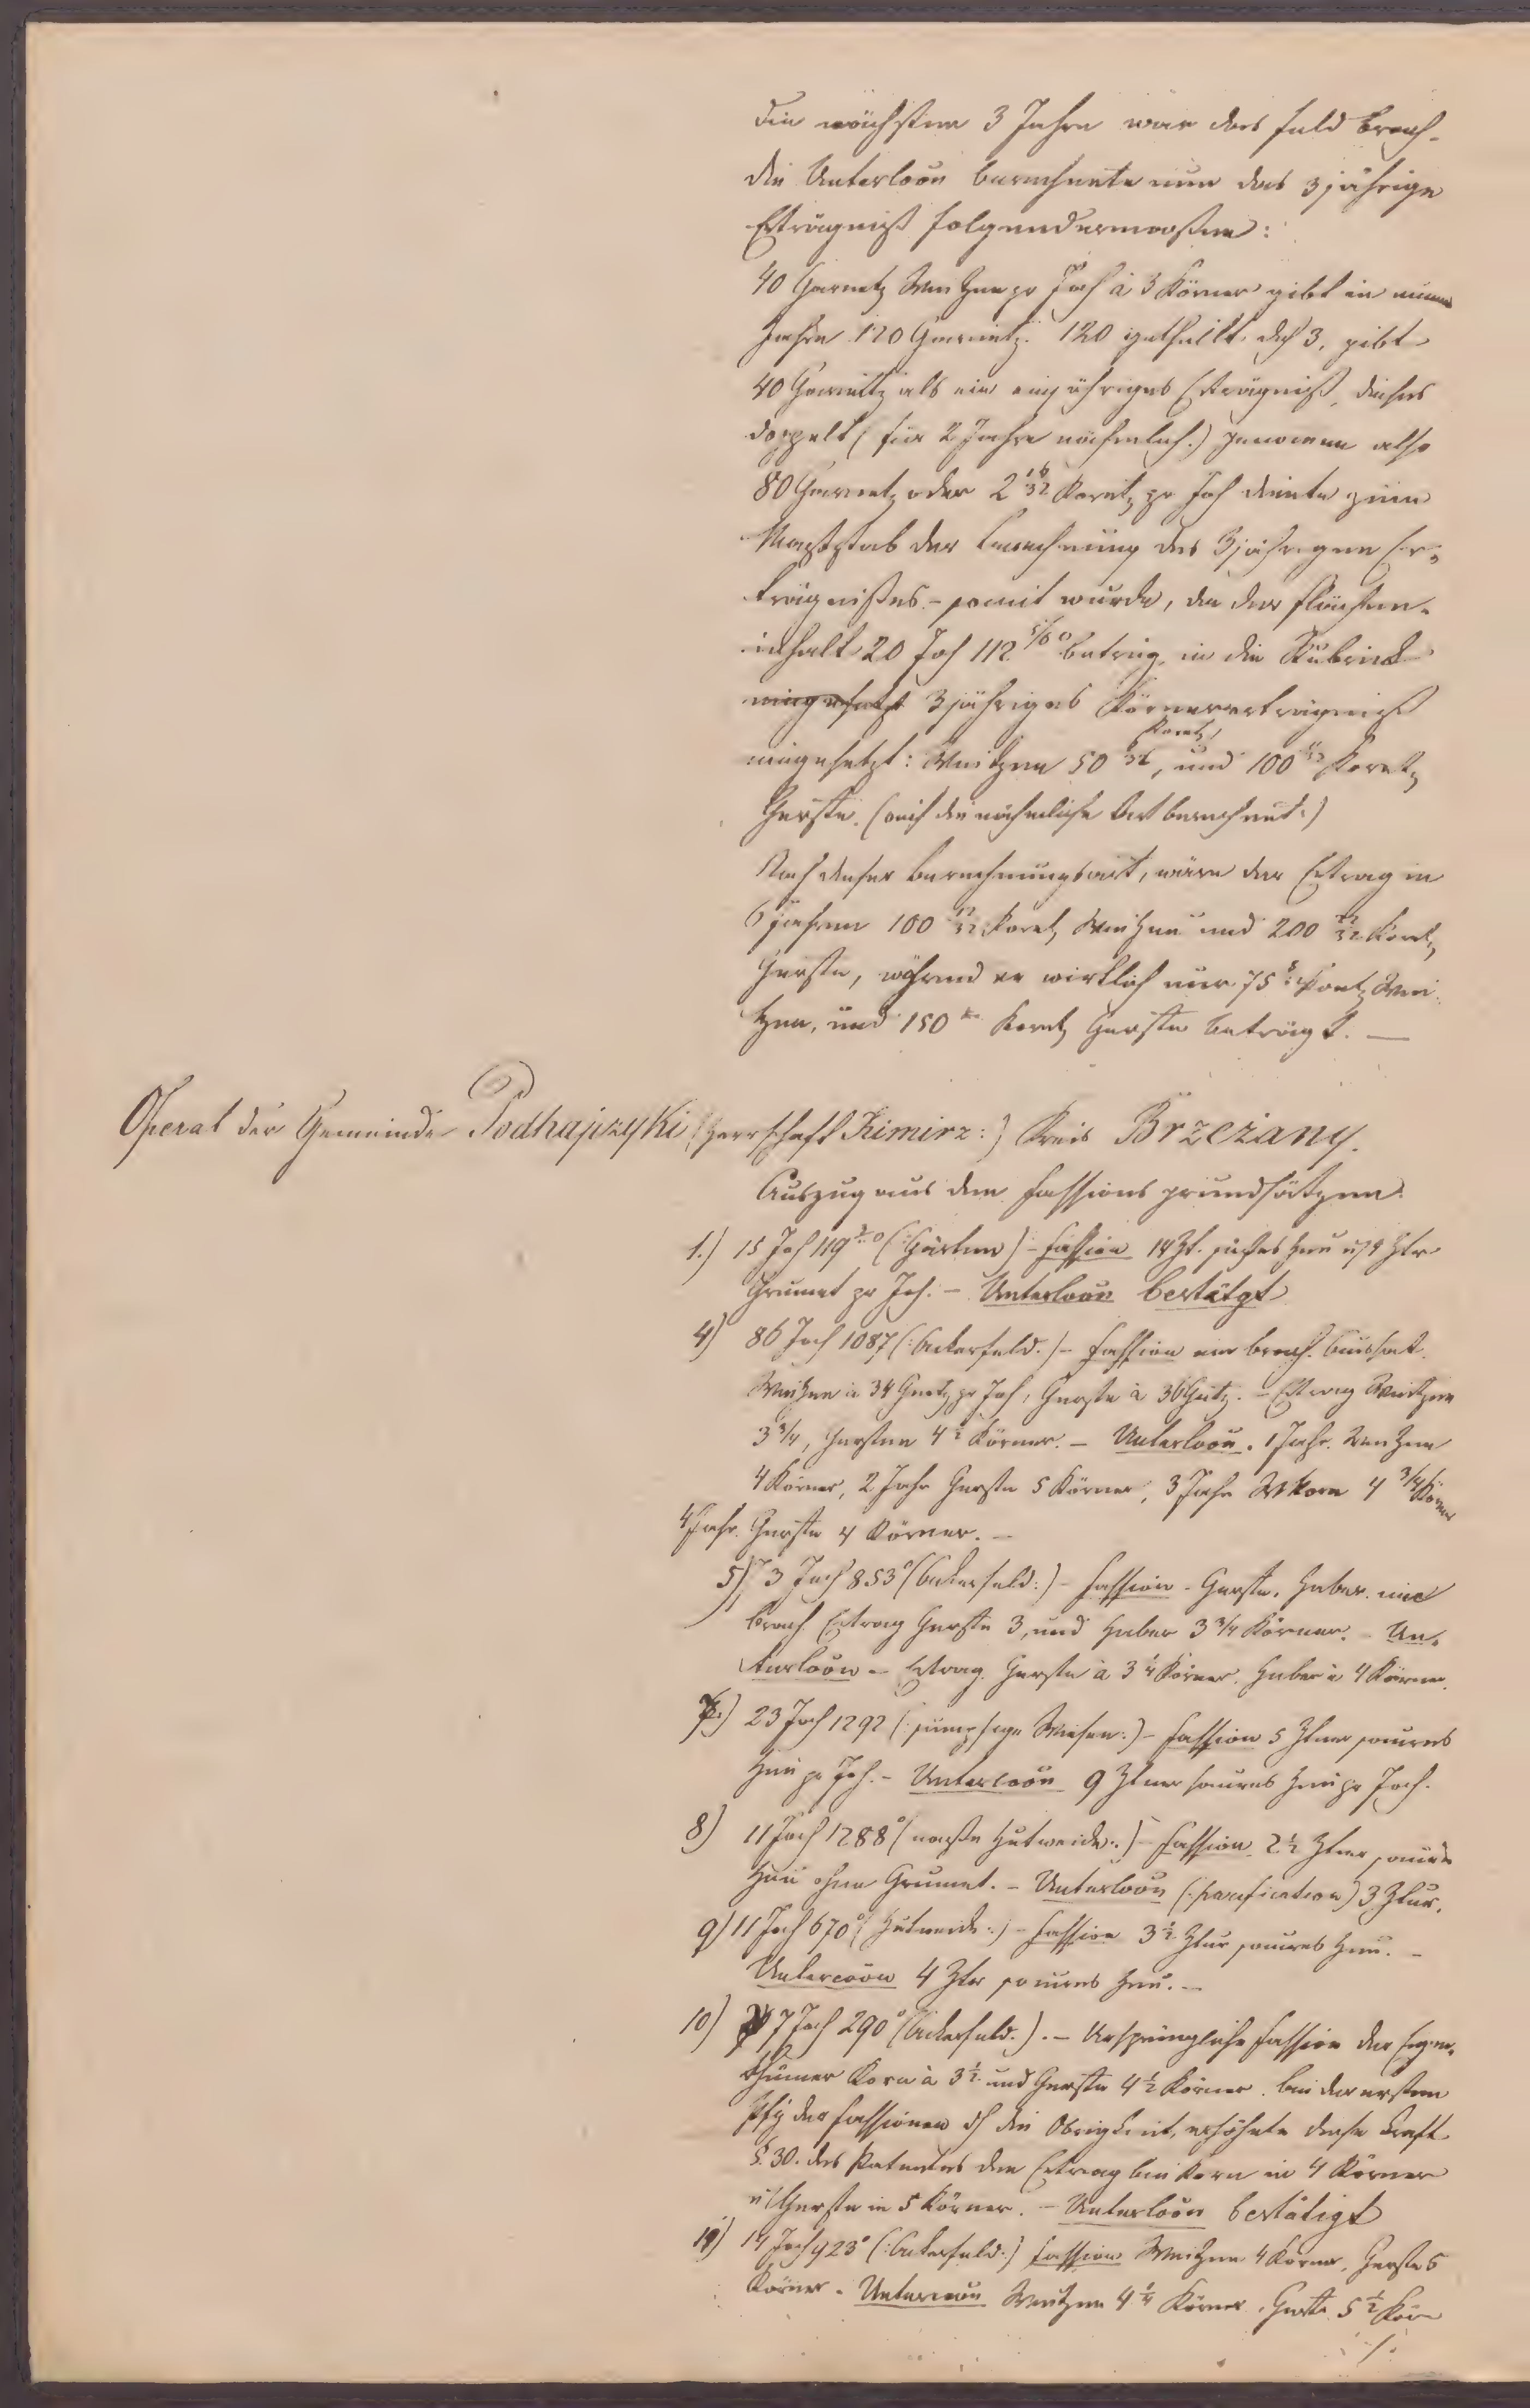 die nächsten 3 Jahre war das Feld brach.
die Unterloõn berechnete nun das 3jährige
Erträgniß folgendermaßen:
40 Garnetz Weitzen pr Joch à 3 Körner gibt in einem
Jahre 120 Garnetz. 120 getheilt dch 3, gibt
40 Garnetz als ein einjähriges Erträgniß, dieses
doppelt (für 2 Jahre nähmlich.) genomen also
80 Garnetz oder 2 16/32 Koretz pr Joch diente zum
Maßstab der Berechnung des 3jährigen Er-
trägnißes – somit wurde, da der Flächen-
inhalt 20 Joch 112 5/6° betrug, in die Rubrick
eingesetzt 3jähriges Körnererträgniß
eingesetzt: Weitzen 50 Koretz, und 100 Koretz
Gerste. (auf die nähmliche Art berechnet.)
Nach dieser Berechnungsart, wäre der Ertrag in
6 Jahren 100 12/32 Koretz Weitzen und 200 22/32 Koretz
Gerste, während er wirklich nur 75 Koretz Wei-
tzen, und 150 Koretz Gerste beträgt. —
Operat der Gemeinde Podhajzyki (Herrschaft Kimirz:) Kreis Brzezany.
Auszug aus den Fassions grundsätzen.
1.) 15 Joch 119 (:Gärten) – Fassion 14 Zt. süßes Heu u 4 Ztr
Grumet pr Joch. – Unterloõn bestätgt
4) 86 Joch 1087 (:Ackerfeld.) – Fassion ein brach. Aussat.
Weitzen à 34 Gnetz pr Joch, Gerste à 36 Gntz. – Ertrag Weitzen
3 3/4, Gersten 4 1/2 Körner. – Unterloõn. 1 Jahr. Weitzen
4 Körner, 2 Jahr Gerste 5 Körner, 3 Jahr Wkorn 4 3/4 Körner
4 Jahr. Gerste 4 Körner. –
5) 3 Joch 853° (Ackerfeld:) – Fassion – Gerste. Haber. und
brach. Ertrag Gerste 3, und Haber 3 3/4 Körner. – Un-
terloõn – Ertrag. Gerste à 3 1/4 Körner. Haber à 4 Körner.
7.) 23 Joch 1292 (:sumpfige Wiesen:) – Fassion 5 Ztner saures
Heu pr Joch. – Unterloõn 9 Ztner saures Heu pr Joch.
8) 11 Joch 1288° (nasse Hutweide:) – Fassion 2 1/2 Ztner saures
Heu ohne Grumet. – Unterloõn (:parification) 3 Ztnr.
9) 11 Joch 670° (Hutweide:) – Fassion 3 1/2 Ztnr saures Heu. –
Unterloõn 4 Ztr saures Heu. –
10) 7 Joch 290° (Ackerfeld.). – Ursprüngliche Fassion der Eigen-
thümer Korn à 3 1/2 und Gerste 4 1/2 Körner. bei der ersten
der Fassionen dch die Obrigkeit, erhöhete diese kraft
§. 30. des Patentes den Ertrag bei Korn in 4 Körner
u Gerste in 5 Körner. – Unterloõn bestätigt
14 Joch 423° (:Ackerfeld:) Fassion Weitzen 4 Körner, Gerste 5
Körner – Unterloõn Weitzen 4 1/4 Körner. Gerste 5 1/2 Kör
./.